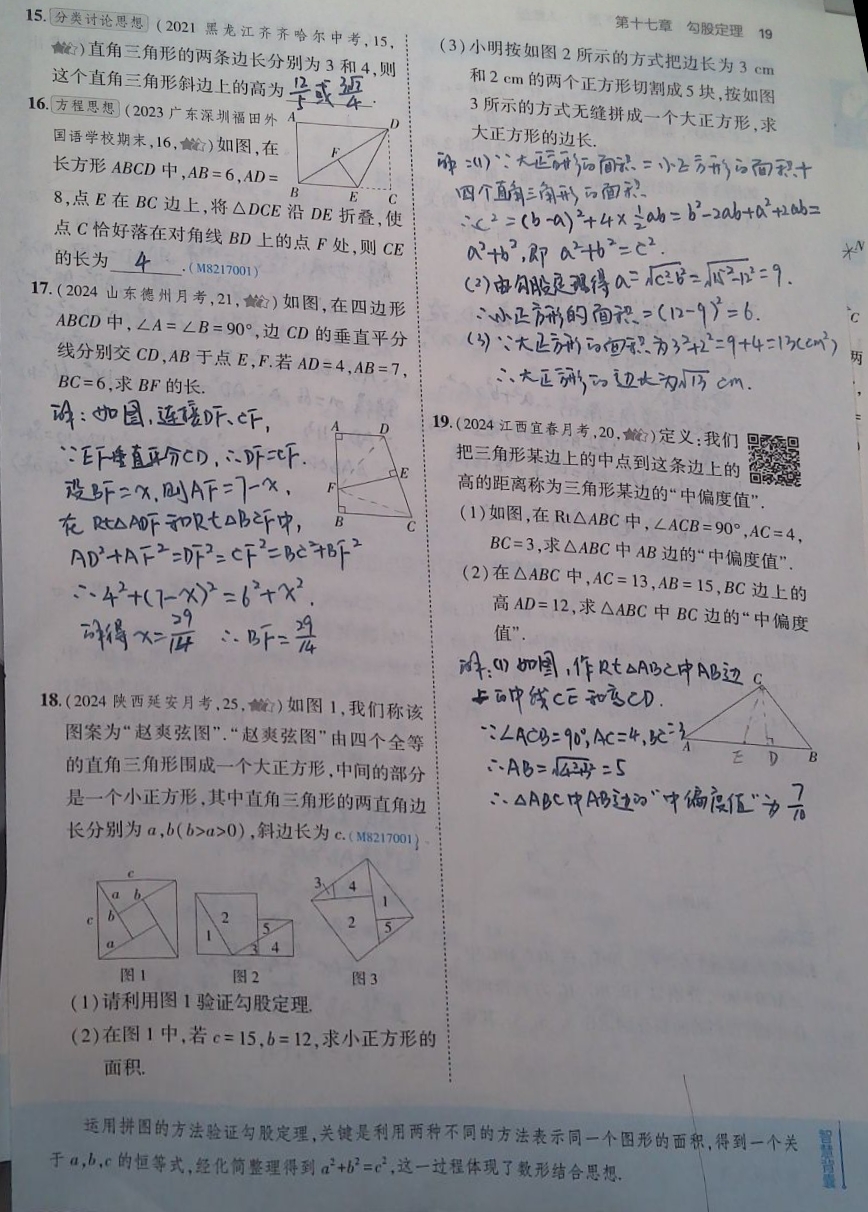 第十七章 勾股定理 19
15.分类讨论思想(2021黑龙江齐齐哈尔中考,15,
)直角三角形的两条边长分别为3和4,则
这个直角三角形斜边上的高为12/5或3√7/4.
16.方程思想(2023广东深圳福田外
国语学校期末,16,)如图,在
长方形ABCD中,AB=6,AD=
8,点E在BC边上,将△DCE沿DE折叠,使
点C恰好落在对角线BD上的点F处,则CE
的长为 4 .(M8217001)
A
D
F
B
E
C
17.(2024山东德州月考,21,)如图,在四边形
ABCD中,∠A=∠B=90°,边CD的垂直平分
线分别交CD,AB于点E,F.若AD=4,AB=7,
BC=6,求BF的长.
解:如图,连接DF、CF,
∵EF垂直平分CD,∴DF=CF.
设BF=x,则AF=7-x,
在Rt△ADF和Rt△BCF中,
AD²+AF²=DF²=CF²=BC²+BF²
∴4²+(7-x)²=6²+x².
解得x=29/14 ∴BF=29/14
A
D
E
F
B
C
18.(2024陕西延安月考,25,)如图1,我们称该
图案为“赵爽弦图”.“赵爽弦图”由四个全等
的直角三角形围成一个大正方形,中间的部分
是一个小正方形,其中直角三角形的两直角边
长分别为a,b(b>a>0),斜边长为c.(M8217001)
c
a b
c b
a
图1
2
1
5
3 4
图2
3 4
1
2
5
图3
(1)请利用图1验证勾股定理.
(2)在图1中,若c=15,b=12,求小正方形的
面积.
(3)小明按如图2所示的方式把边长为3 cm
和2 cm的两个正方形切割成5块,按如图
3所示的方式无缝拼成一个大正方形,求
大正方形的边长.
解:(1)∵大正方形的面积=小正方形的面积+
四个直角三角形的面积.
∴c²=(b-a)²+4×½ab=b²-2ab+a²+2ab=
a²+b²,即a²+b²=c².
(2)由勾股定理得a=√c²-b²=√15²-12²=9.
∴小正方形的面积=(12-9)²=6.
(3)∵大正方形的面积为3²+2²=9+4=13(cm²)
∴大正方形的边长为√13 cm.
19.(2024江西宜春月考,20,)定义:我们
把三角形某边上的中点到这条边上的
高的距离称为三角形某边的“中偏度值”.
(1)如图,在Rt△ABC中,∠ACB=90°,AC=4,
BC=3,求△ABC中AB边的“中偏度值”.
(2)在△ABC中,AC=13,AB=15,BC边上的
高AD=12,求△ABC中BC边的“中偏度
值”.
解:(1)如图,作Rt△ABC中AB边
上的中线CE和高CD.
∵∠ACB=90°,AC=4,BC=3
∴AB=√4²+3²=5
∴△ABC中AB边的“中偏度值”为7/10
C
A
E
D
B
运用拼图的方法验证勾股定理,关键是利用两种不同的方法表示同一个图形的面积,得到一个关
于a,b,c的恒等式,经化简整理得到a²+b²=c²,这一过程体现了数形结合思想.
智慧背囊
N
C
两